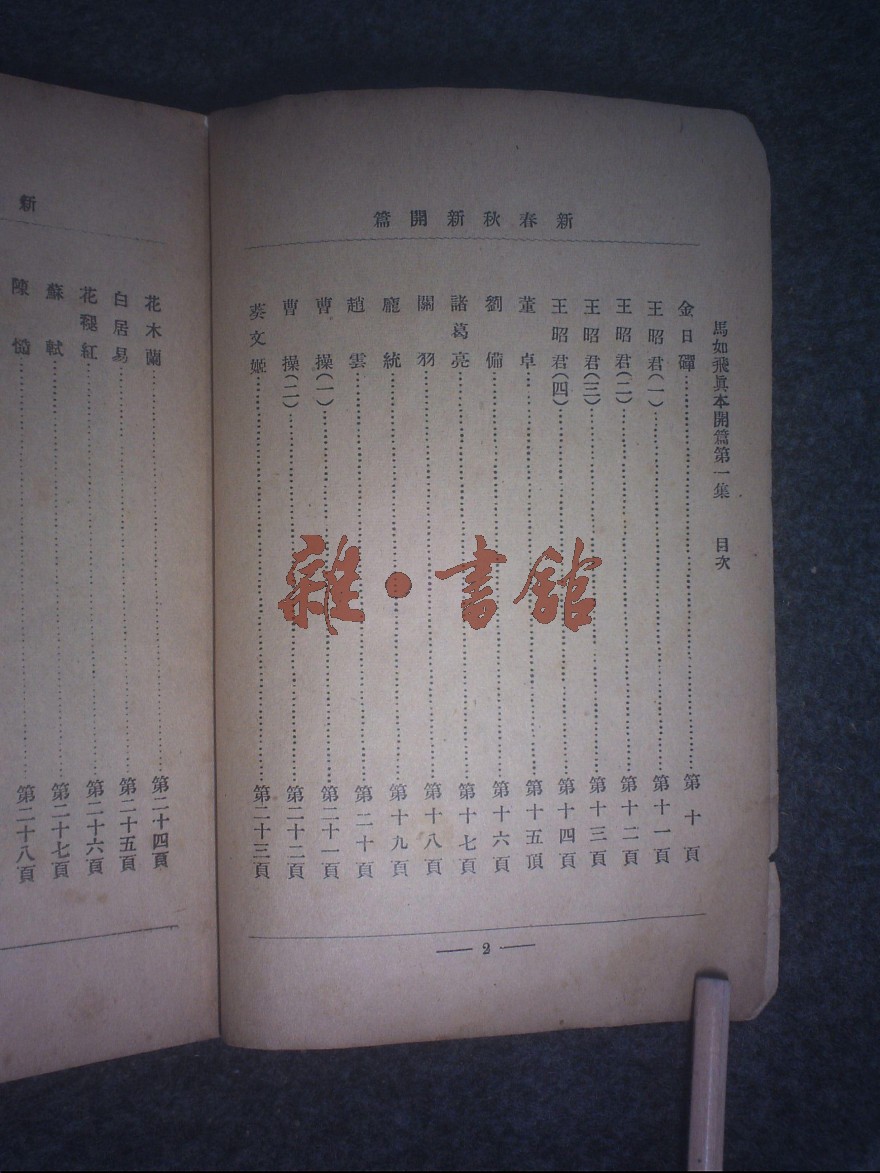 新春秋新開篇
馬如飛眞本開篇第一集 目次
金日磾……第十頁
王昭君(一)……第十一頁
王昭君(二)……第十二頁
王昭君(三)……第十三頁
王昭君(四)……第十四頁
董卓……第十五頂
劉備……第十六頁
諸葛亮……第十七頁
關羽……第十八頁
龐統……第十九頁
趙雲……第二十頁
曹操(一)……第二十一頁
曹操(二)……第二十二頁
蔡文姬……第二十三頁
2
新
花木蘭……第二十四頁
白居易……第二十五頁
花褪紅……第二十六頁
蘇軾……第二十七頁
陳慥……第二十八頁
雜·書館